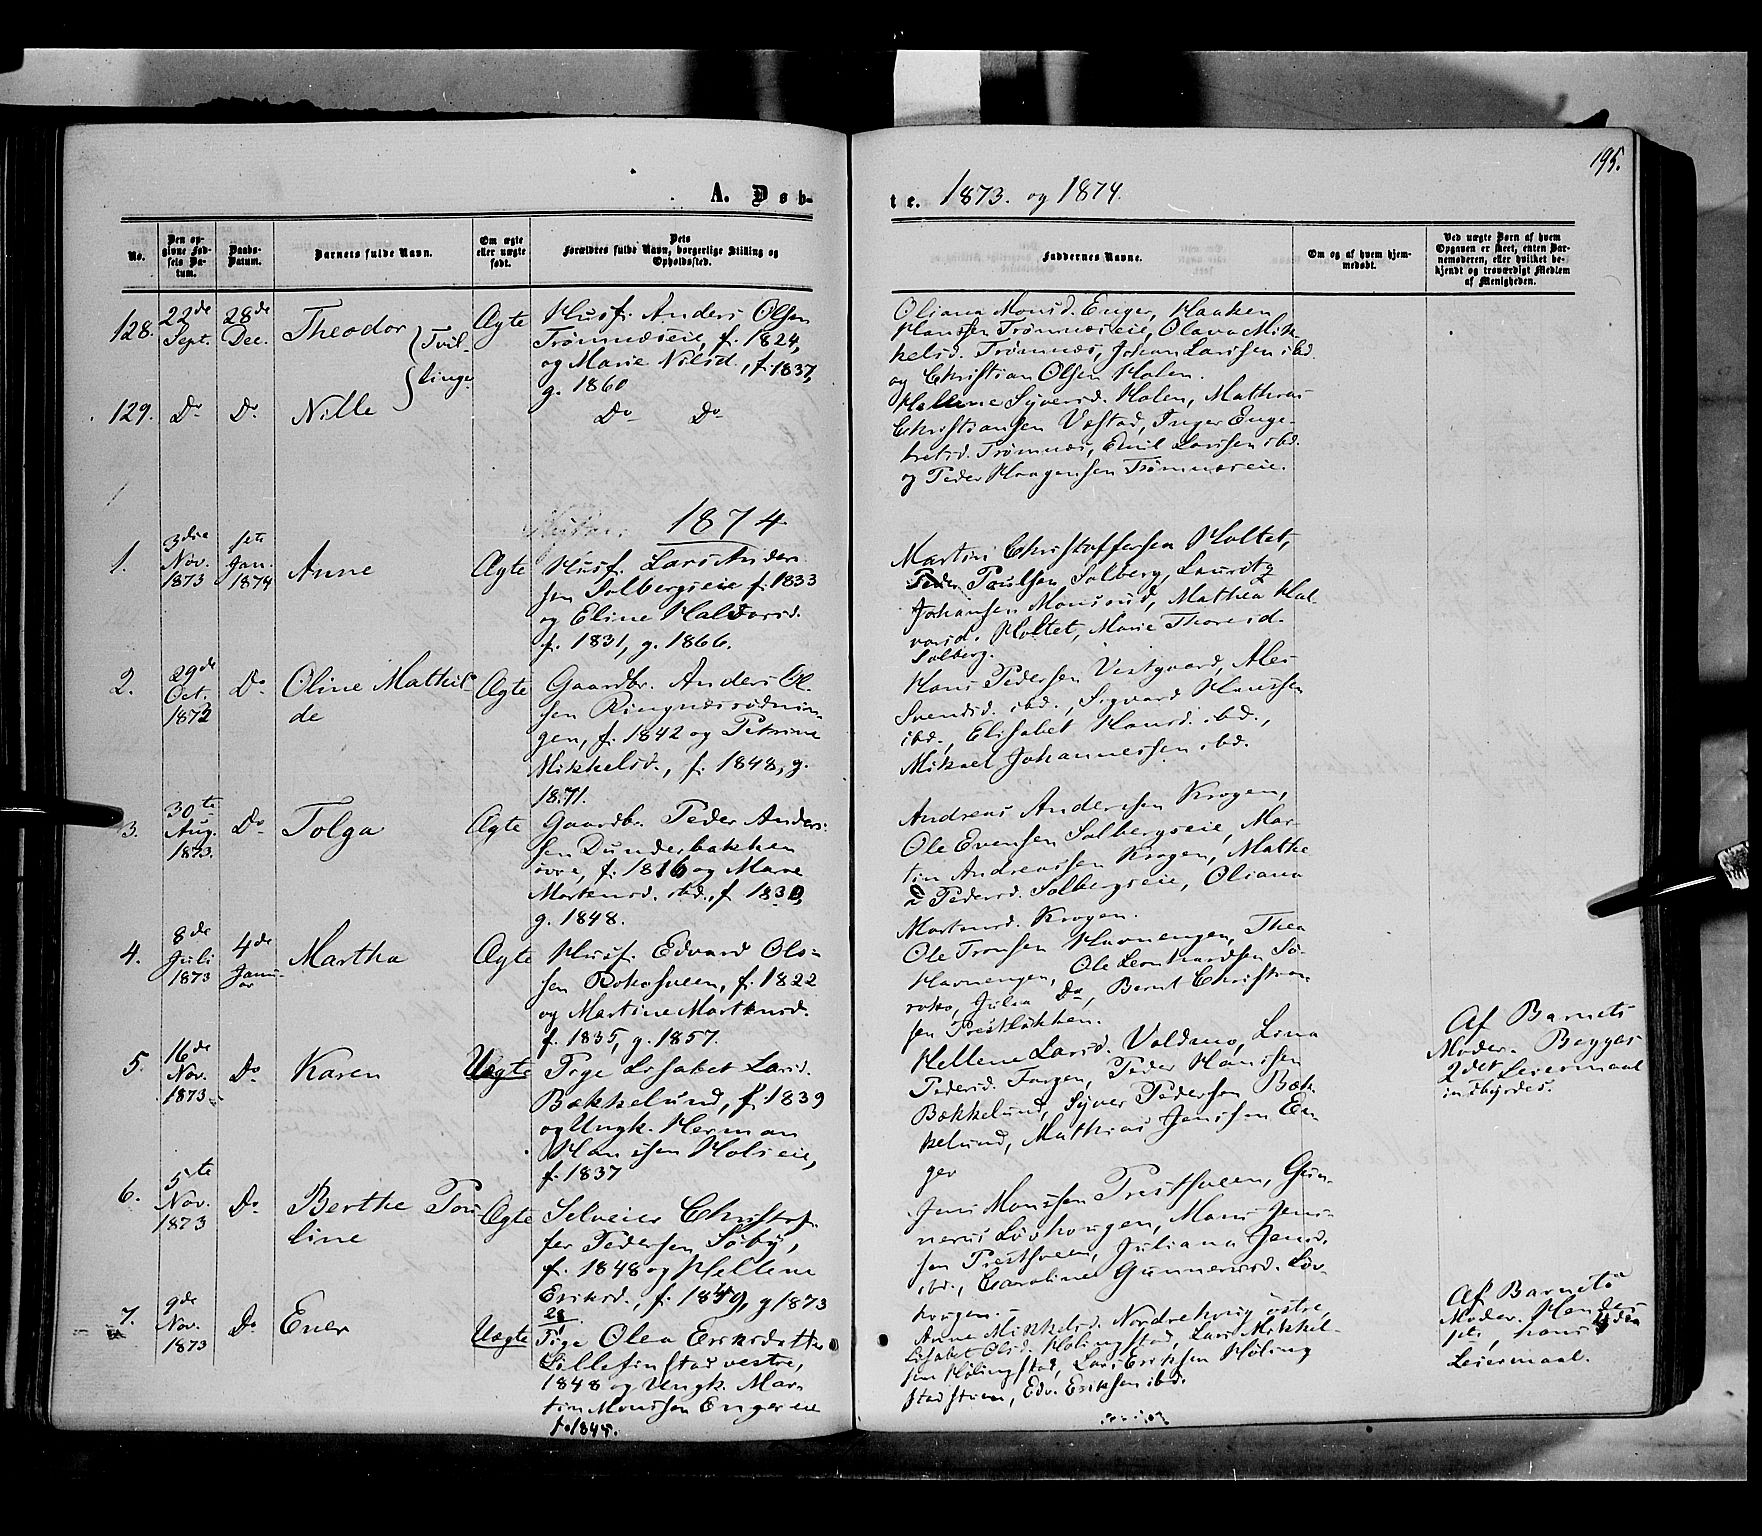 195.
A. Døb-
te. 1873. og 1874.
No.
Den op-
givne Fød-
sels Da-
tum.
Daabs-
Datum.
Barnets fulde Navn.
Om ægte
eller uægte
født.
Dets
Forældres fulde Navn, borgerlige Stilling og
Opholdssted.
Faddernes Navne.
Om og af hvem hjem-
medøbt.
Ved uægte Børn af hvem
Opgaven er skeet, enten Bar-
nemoderen, eller hvilket be-
kjendt og troværdigt Medlem
af Menigheden.
128.
22de
Sept.
28de
Dec.
Theodor
Tvil-
linge
Ægte
Husf. Anders Olsen
Trømnæseie, f. 1824,
og Marie Nilsd., f. 1837,
g. 1860
Oliana Monsd. Enger, Haaken
Hanssen Trømnæseie, Olava Mik-
kelsd. Trømnæs, Johan Larssen ibd.
og Christian Olsen Holen.
129.
Do
Do
Nille
Do Do
Hellene Syversd. Holen, Mathias
Christiansen Vestad, Inger Enge-
bretsd. Trømnæs, Emil Larssen ibd.
og Peder Haagensen Trømnæseie.
1874
1.
3die
Nov.
1873
1ste
Jan.
1874
Anne
Ægte
Husf. Lars Anders-
sen Solbergseie f. 1833
og Eline Halvorsd.
f. 1831, g. 1866.
Martin Christoffersen Holtet,
Peder Paulsen Solberg, Lauritz
Johansen Monsrud, Mathea Hal-
vorsd. Holtet, Marie Thoresd.
Solberg.
2.
29de
Oct.
1873
Do
Oline Mathil-
de
Ægte
Gaardbr. Anders Ol-
sen Ringnæsrødnin-
gen, f. 1842 og Petrine
Mikkelsd., f. 1848, g.
1871.
Hans Pedersen Vestgaard,
Svendsd. ibd., Sigvard Hanssen
ibd., Elisabet Hansd. ibd.,
Mikael Johannessen ibd.
3.
30te
Aug.
1873.
Do
Tolga
Ægte
Gaardbr. Peder Anders-
sen Dunderbakken
øvre, f. 1816 og Mare
Mortensd. ibd., f 1830,
g. 1848.
Andreas Anderssen Krogen,
Ole Evensen Solbergseie, Mar-
tin Andreassen Krogen, Mathe
a Pedersd. Solbergseie, Oliana
Mortensd. Krogen.
4.
8de
Juli
1873
4de
Janu-
ar
Martha
Ægte
Husf. Edvard Ols-
sen Rokosveen, f. 1822
og Martine Mortensd.
f. 1835, g. 1857.
Ole Tronsen Havnengen, Thea
Havnengen, Ole Leonhardsen Sø-
roko, Julia Do, Bernt Christian-
sen Prestløkken.
5.
16de
Nov.
1873
Do
Karen
Uægte
Pige Lisabet Larsd.
Bækkelund, f. 1839
og Ungk. Herman
Hanssen Holseie,
f. 1837
Hellene Larsd. Voldmo, Lina
Pedersd. Torgen, Peder Hanssen
Bækkelund, Syver Pedersen Bæk-
kelund, Mathias Jenssen En-
ger
Af Barnets
Moder. Begges
2det Leiermaal
indbyrdes.
6.
5te
Nov.
1873
Do
Berthe Pau
line
Ægte
Selveier Christof-
fer Pedersen Søby,
f. 1848 og Hellene
Eriksd., f. 1849, g 1873
Jens Monssen Prestsveen, Gun-
nerus Løvhougen, Mons Jens-
sen Prestsveen, Juliana Jensd.
ibd., Caroline Gunnerusd. Løv-
hougen.
7.
9de
Nov.
1873
Do
Ener
Uægte
Pige Olea Eriksdatter
Lillefinstad vestre,
1848 og Ungk. Mar-
tin Monssen Engereie
f. 1845.
Anne Mikkelsd. Nordrehoug østre,
Lisabet Olsd. Hølingstad, Lars Mikkel-
sen Hølingstad, Lars Eriksen Høling
stadstuen, Edv. Eriksen ibd.
Af Barnets
Moder. Hendes
1ste, hans
Leiermaal.